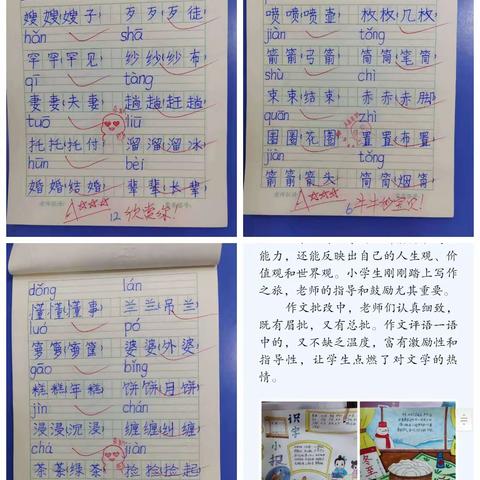 嫂嫂(嫂子) 歹歹(歹徒)
hǎn shā
罕罕(罕见) 纱纱(纱布)
qī tàng
妻妻(夫妻) 趟趟(赶趟)
tuō liū
托托(托付) 溜溜(溜冰)
hūn bèi
婚婚(结婚) 辈辈(长辈)
12.
喷喷(喷壶) 枚枚(几枚)
jiàn tǒng
箭箭(弓箭) 筒筒(笔筒)
shù chì
束束(结束) 赤赤(赤脚)
quān zhì
圈圈(花圈) 置置(布置)
jiàn tǒng
箭箭(箭头) 筒筒(烟筒)
6
dǒng lán
懂懂(懂事) 兰兰(吊兰)
luó pó
箩箩(箩筐) 婆婆(外婆)
gāo bǐng
糕糕(年糕) 饼饼(月饼)
jìn chán
浸浸(沉浸) 缠缠(纠缠)
chá jiǎn
茶茶(绿茶) 捡捡(捡起)
能力，还能反映出自己的人生观、价
值观和世界观。小学生刚刚踏上写作
之旅，老师的指导和鼓励尤其重要。
作文批改中，老师们认真细致，
既有眉批，又有总批。作文评语一语
中的，又不缺乏温度，富有激励性和
指导性，让学生点燃了对文学的热
情。
识字
小报
冬至